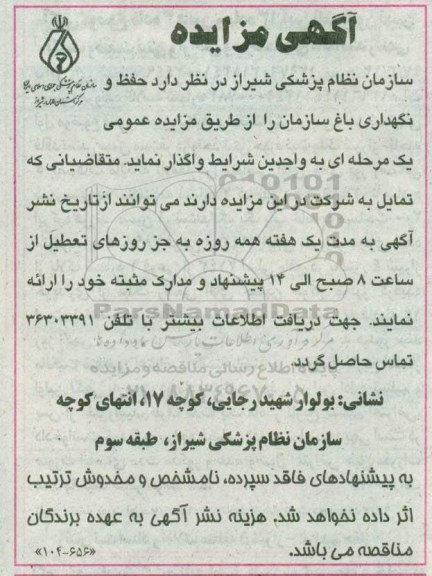 آگهی مزایده
سازمان نظام پزشکی شیراز در نظر دارد حفظ و
نگهداری باغ سازمان را از طریق مزایده عمومی
یک مرحله ای به واجدین شرایط واگذار نماید. متقاضیانی که
تمایل به شرکت در این مزایده دارند می توانند از تاریخ نشر
آگهی به مدت یک هفته همه روزه به جز روزهای تعطیل از
ساعت ۸ صبح الی ۱۴ پیشنهاد و مدارک مثبته خود را ارائه
ParsNamadData
نمایند. جهت دریافت اطلاعات بیشتر با تلفن ۳۶۳۰۳۳۹۱
تماس حاصل گردد.
نشانی: بولوار شهید رجایی، کوچه ۱۷، انتهای کوچه
سازمان نظام پزشکی شیراز، طبقه سوم
به پیشنهادهای فاقد سپرده، نامشخص و مخدوش ترتیب
اثر داده نخواهد شد. هزینه نشر آگهی به عهده برندگان
مناقصه می باشد.
«۱۰۴-۶۵۶»